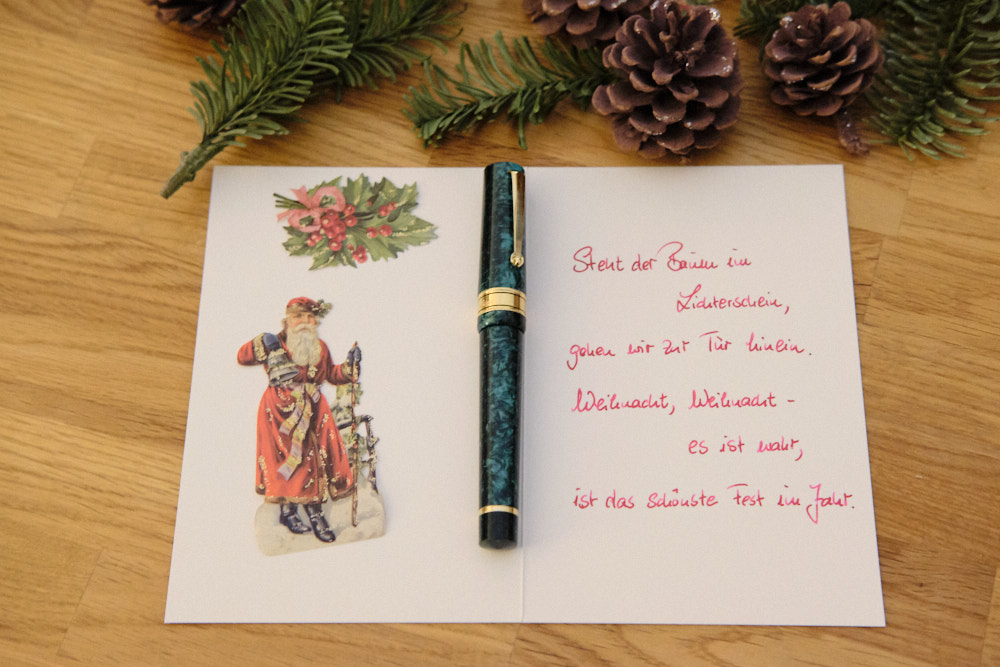 Steht der Baum im
Lichterschein,
gehen wir zur Tür hinein.
Weihnacht, Weihnacht -
es ist wahr,
ist das schönste Fest im Jahr.